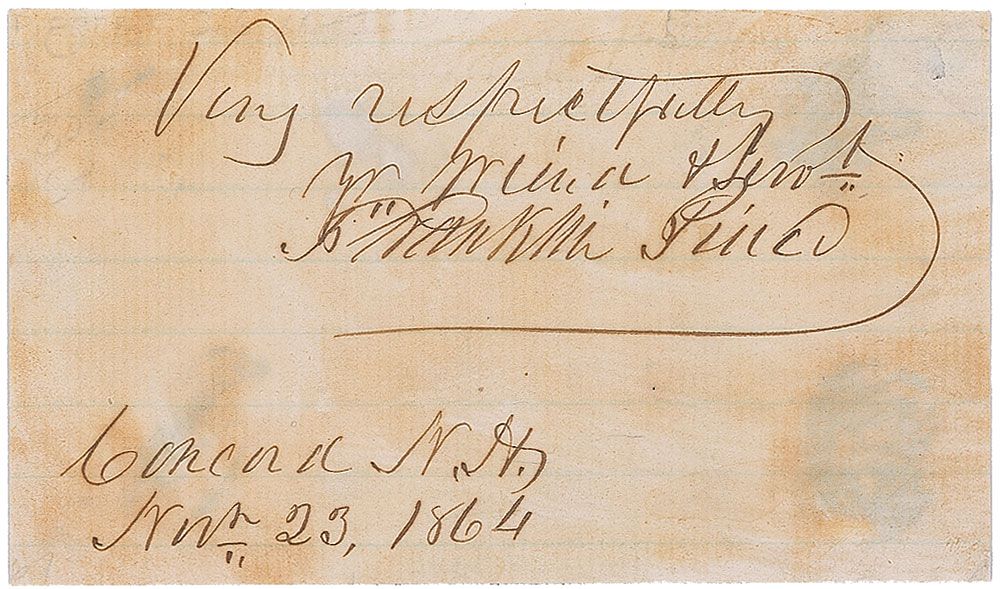 Very respectfully
Yr friend & Servt
Franklin Pierce
Concord N.H.
Novr 23, 1864